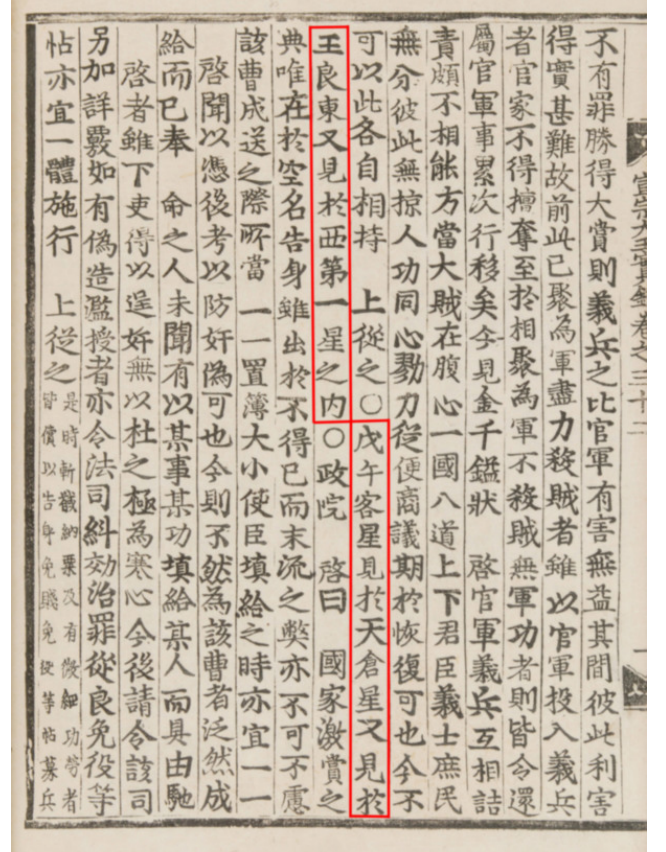 不有罪勝得大賞則義兵之比官軍有害無益其間彼此利害
得實甚難故前此已聚為軍盡力殺賊者雖以官軍投入義兵
者官家不得擅奪至於相聚為軍不殺賊無軍功者則皆令還
屬官軍事累次行移矣今見金千鎰狀 啓官軍義兵互相詰
責頗不相能方當大賊在腹心一國八道上下君臣義士庶民
無分彼此無掠人功同心勠力從便商議期於恢復可也今不
可以此各自相持 上從之○戊午客星見於天倉星又見於
王良東又見於西第一星之內○政院 啓曰 國家激賞之
典唯在於空名告身雖出於不得已而末流之弊亦不可不慮
該曹成送之際所當一一置簿大小使臣填給之時亦宜一一
啓聞以憑後考以防奸偽可也今則不然為該曹者泛然成
給而已奉 命之人未聞有以某事某功填給某人而具由馳
啓者雖下吏得以逞奸無以杜之極為寒心今後請令該司
另加詳覈如有偽造濫授者亦令法司糾劾治罪從良免役等
帖亦宜一體施行 上從之
是時斬馘納粟及有微細功勞者
皆償以告身免賤免役等帖募兵
宣宗大王實錄卷之三十二